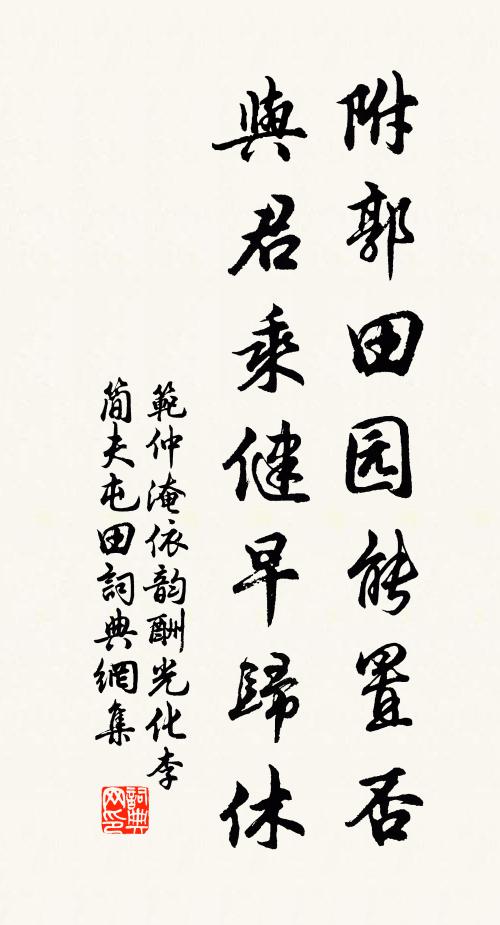 附郭田园能置否
與君乘健早歸休
範仲淹依韵酬光化李
简夫屯田詞典網集
詞典
网印